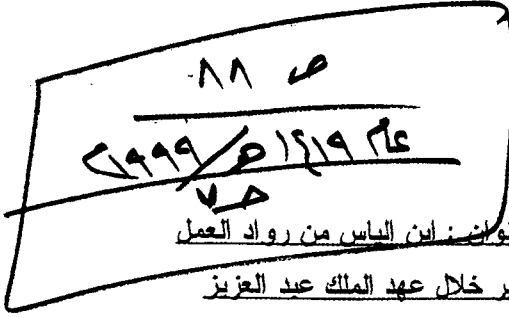 ص ٨٨
عام ١٤١٩هـ/١٩٩٩م
حـ٧
ـوان : ابن الياس من رواد العمل
ـر خلال عهد الملك عبد العزيز